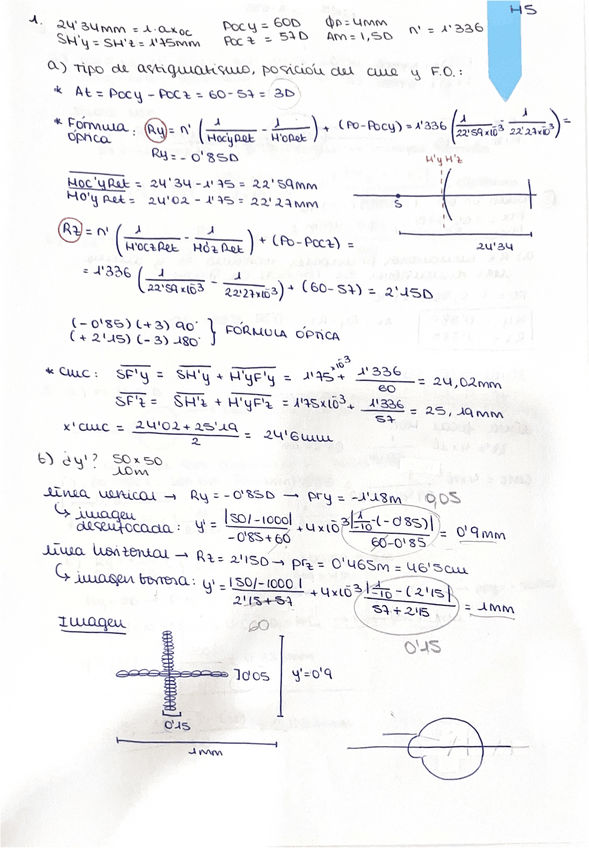 HS
1. 24'34mm = l.axoc   Pocy = 60D   φp = 4mm   n' = 1'336
SH'y = SH'z = 1'75mm   Poc z = 57D   Am = 1,5D
a) Tipo de astigmatismo, posición del cmc y F.O.:
* At = Pocy - Pocz = 60 - 57 = 3D
* Fórmula óptica: Ry = n' (1/H'oc'yRet - 1/H'oRet) + (Po - Pocy) = 1'336 (1/22'59x10⁻³ - 1/22'27x10⁻³) =
Ry = -0'85D
H'y H'z
Hoc'yRet = 24'34 - 1'75 = 22'59mm
Ho'yRet = 24'02 - 1'75 = 22'27mm
S
24'34
Rz = n' (1/H'oczRet - 1/H'ózRet) + (Po - Pocz) =
= 1'336 (1/22'59x10⁻³ - 1/22'27x10⁻³) + (60 - 57) = 2'15D
(-0'85) (+3) 90°
(+2'15) (-3) 180°
} FÓRMULA ÓPTICA
* cmc: SF'y = SH'y + H'yF'y = 1'75x10⁻³ + 1'336/60 = 24,02mm
SF'z = SH'z + H'yF'z = 1'75x10⁻³ + 1'336/57 = 25,19mm
x'cmc = 24'02 + 25'19/2 = 24'6mm
b) ¿y'? 50x50
10m
línea vertical → Ry = -0'85D → pry = -1'18m   0,05
↳ imagen desenfocada: y' = |50/-1000|/-0'85+60 + 4x10⁻³ |1/-10 - (-0'85)|/60-0'85 = 0'9mm
línea horizontal → Rz = 2'15D → prz = 0'465m = 46'5cm
↳ imagen borrona: y' = |50/-1000|/2'15+57 + 4x10⁻³ |1/-10 - (2'15|/57+2'15 = 1mm
60
0'15
Imagen
]0'05
y' = 0'9
0'15
1mm